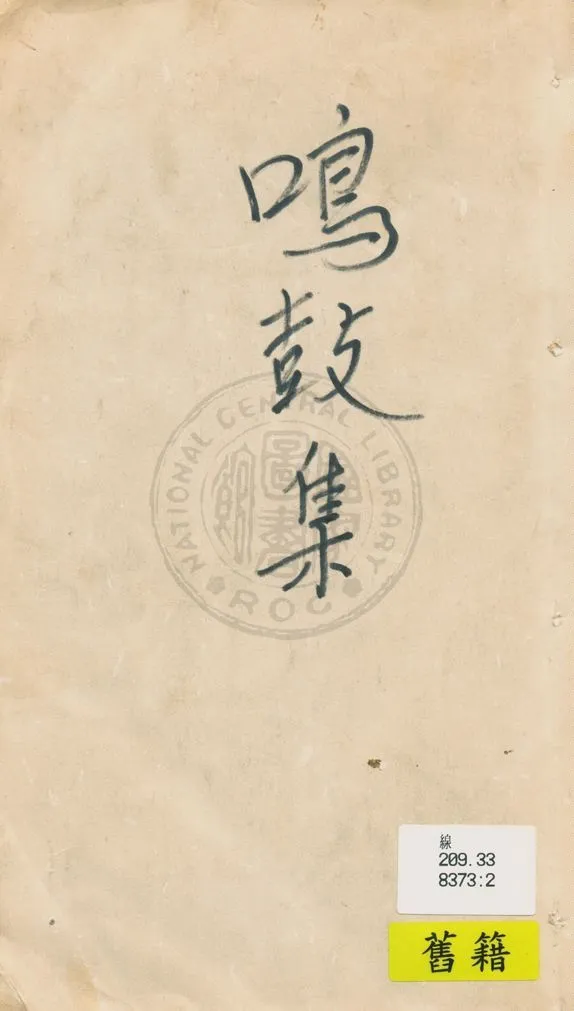 鳴鼓集
NATIONAL CENTRAL LIBRARY
ROC
線
209.33
8373:2
舊籍